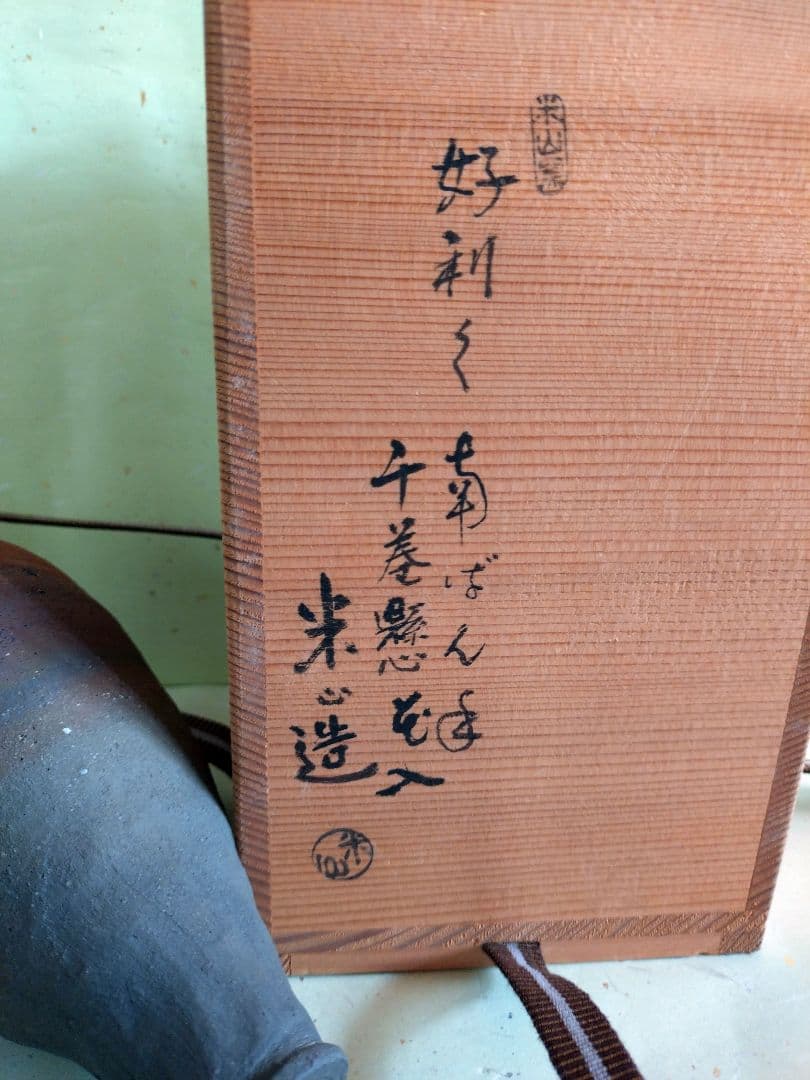 米山
好利く
南ばん手
懸花入
米山造
米山